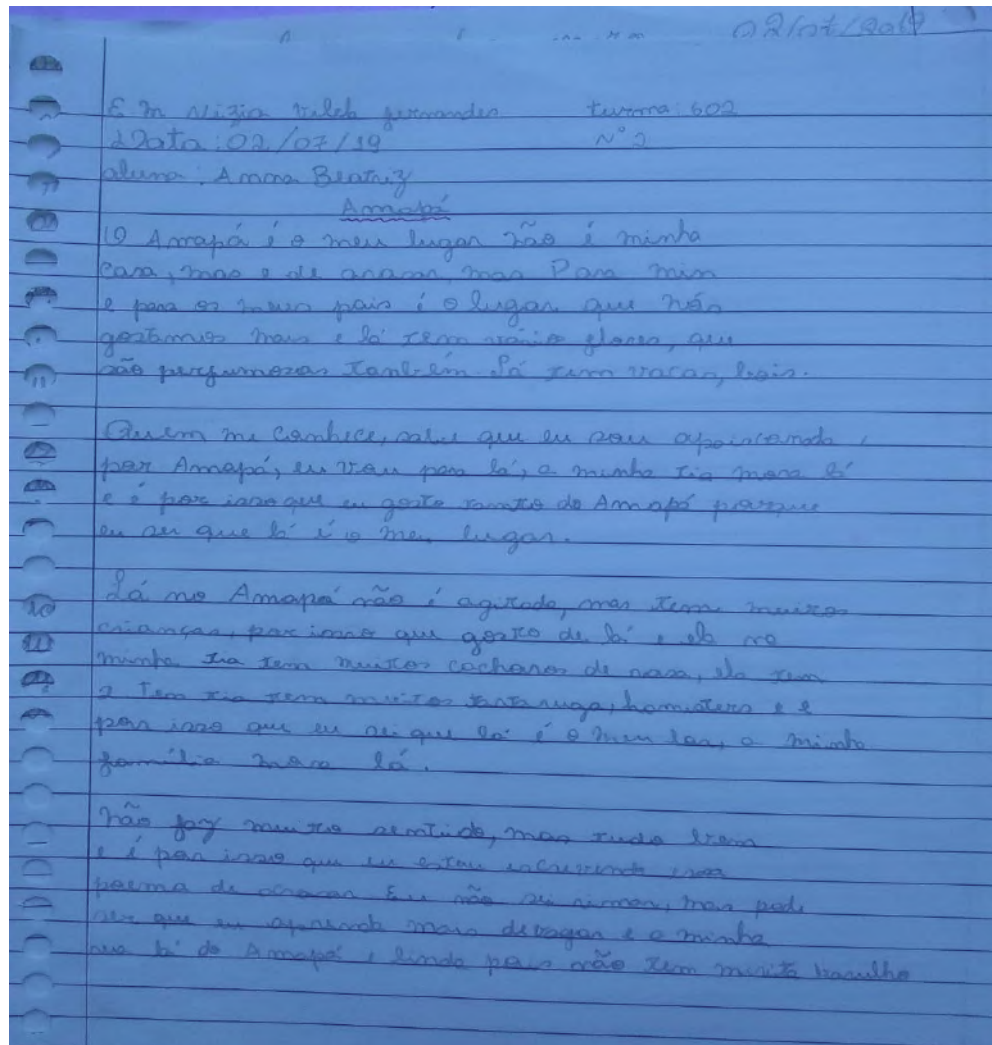 02/07/2019
E. M Alizia Vilela fernandes turma: 602
Data: 02/07/19 N° 2
aluna: Anna Beatriz
Amapá
O Amapá é o meu lugar não é minha
casa, mas e de arasar, mas Para mim
e para os meus pais é o lugar que nós
gostamos mais e lá tem vários flores, que
são perfumozas também Lá tem vacas, bois.
Quem me conhece, sabe que eu sou apaixonada
por Amapá, eu vou para lá, a minha tia mora lá
e é por isso que eu gosto tanto do Amapá porque
eu sei que lá é o meu lugar.
Lá no Amapá não é agitado, mas tem muitos
crianças, por isso que gosto de lá e ela na
minha tia tem muitos cachoros de rasa, ela tem
a tia tem muitos tartaruga, hamisters e é
por isso que eu sei que lá é o meu lar, a minha
família mora lá.
não faz muito sentido, mas tudo bem
e é por isso que eu estou escrevendo esse
poema de Eu não sei rimar, mas pode
ser que eu aprenda mais devagar e a minha
rua lá do Amapá é linda pois não tem muito barulho